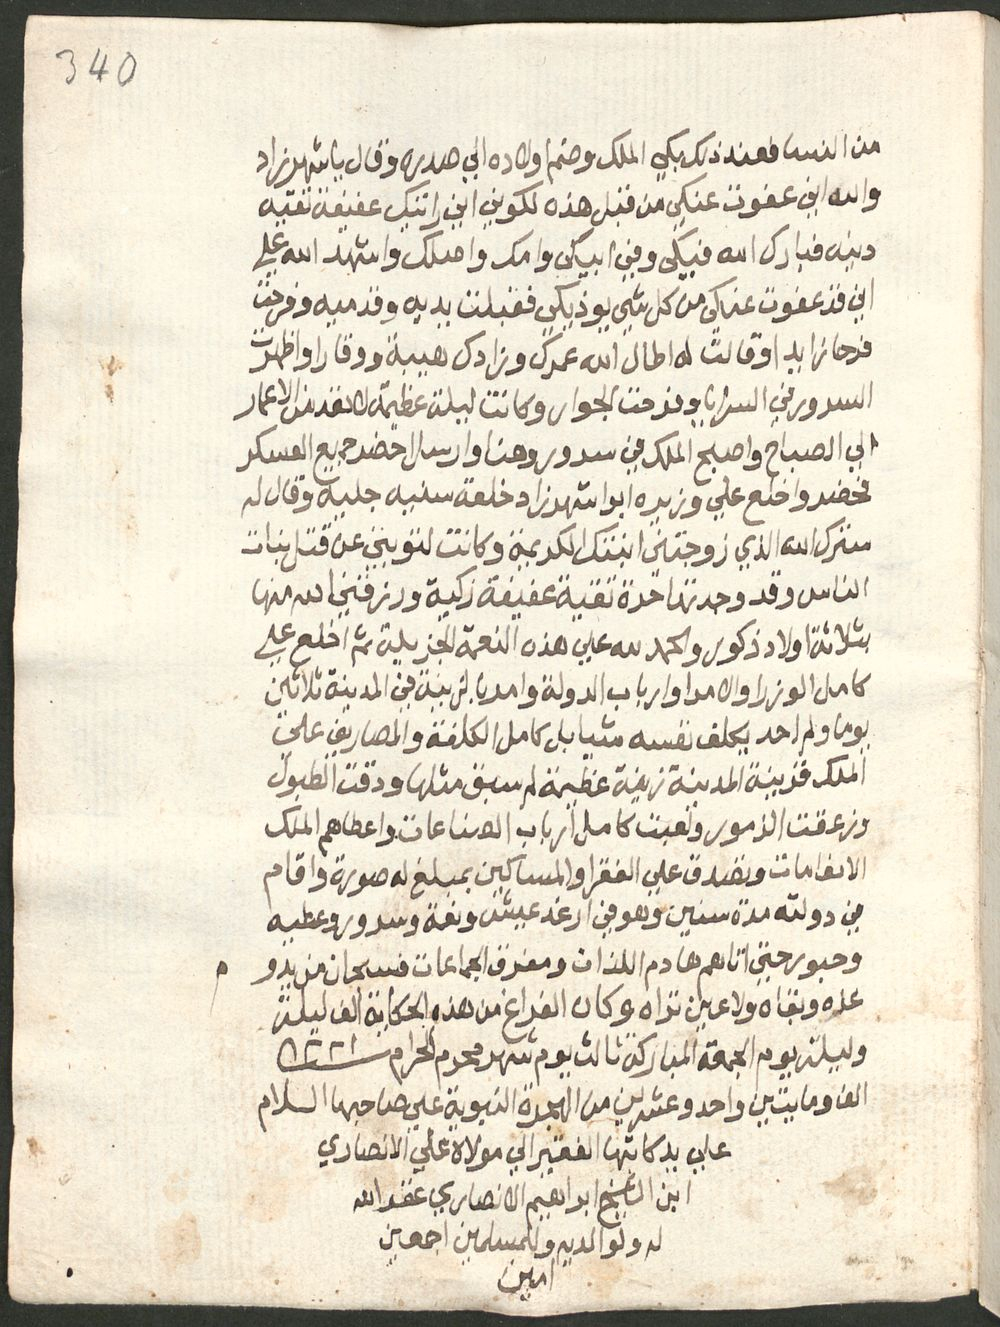 340
من النسا فعند ذلك بكي الملك وضم اولاده الي صدره وقال يا شهرزاد
والله اني عفوت عنكي من قبل هذه لكوني اني راتيك عفيفة نقيه
دينه فبارك الله فيكي وفي ابيكي وامك واصلك واشهد الله علي
اني قد عفوت عنكي من كل شي يوذيكي فقبلت يديه وقدميه وفرحت
فرحا زايدا وقالت له اطال الله عمرك وزادك هيبة ووقارا واظهرت
السرور في السرايا وفرحت الجوار وكانت ليلة عظيمة لا تعد من الاعمار
الي الصباح واصبح الملك في سرور وهنا وارسل احضر جميع العسكر
فحضر واخلع علي وزيره ابو شهرزاد خلعة سنيه جليه وقال له
سترك الله الذي زوجتني ابنتك الكريمة وكانت لتوبتي عن قتل بنات
الناس وقد وجدتها حرة تقية عفيفة زكية ورزقني الله منها
بثلاثة اولاد ذكور والحمد لله علي هذه النعمة الجزيلة ثم اخلع علي
كامل الوزرا والامرا وارباب الدولة وامر بالزينة في المدينة ثلاثين
يوما ولم احد يكلف نفسه شيا بل كامل الكلفة والمصاريف علي
الملك فزينة المدينة زينة عظيمة لم سبق مثلها ودقت الطبول
وزعقت الزمور ولعبت كامل ارباب الصناعات واعطاهم الملك
الانعامات وتصدق علي الفقرا والمساكين بمبلغ له صورة واقام
في دولته مدة سنين وهو في ارغد عيش ونعة وسرور وعطيه
وحبور حتي اتاهم هادم اللذات ومفرق الجماعات فسبحان من يدو
عزه وبقاه ولا عين تراه وكان الفراغ من هذه الحكاية الف ليلة
وليلة يوم الجمعة المباركة ثالث يوم شهر محرم الحرام ١٢٢١
الف ومايتين واحد وعشرين من الهجرة النبوية علي صاحبها السلام
علي يد كاتبها الفقير الي مولاه علي الانصاري
ابن الشيخ ابراهيم الانصاري عفر الله
له ولوالديه وللمسلمين اجمعين
امين